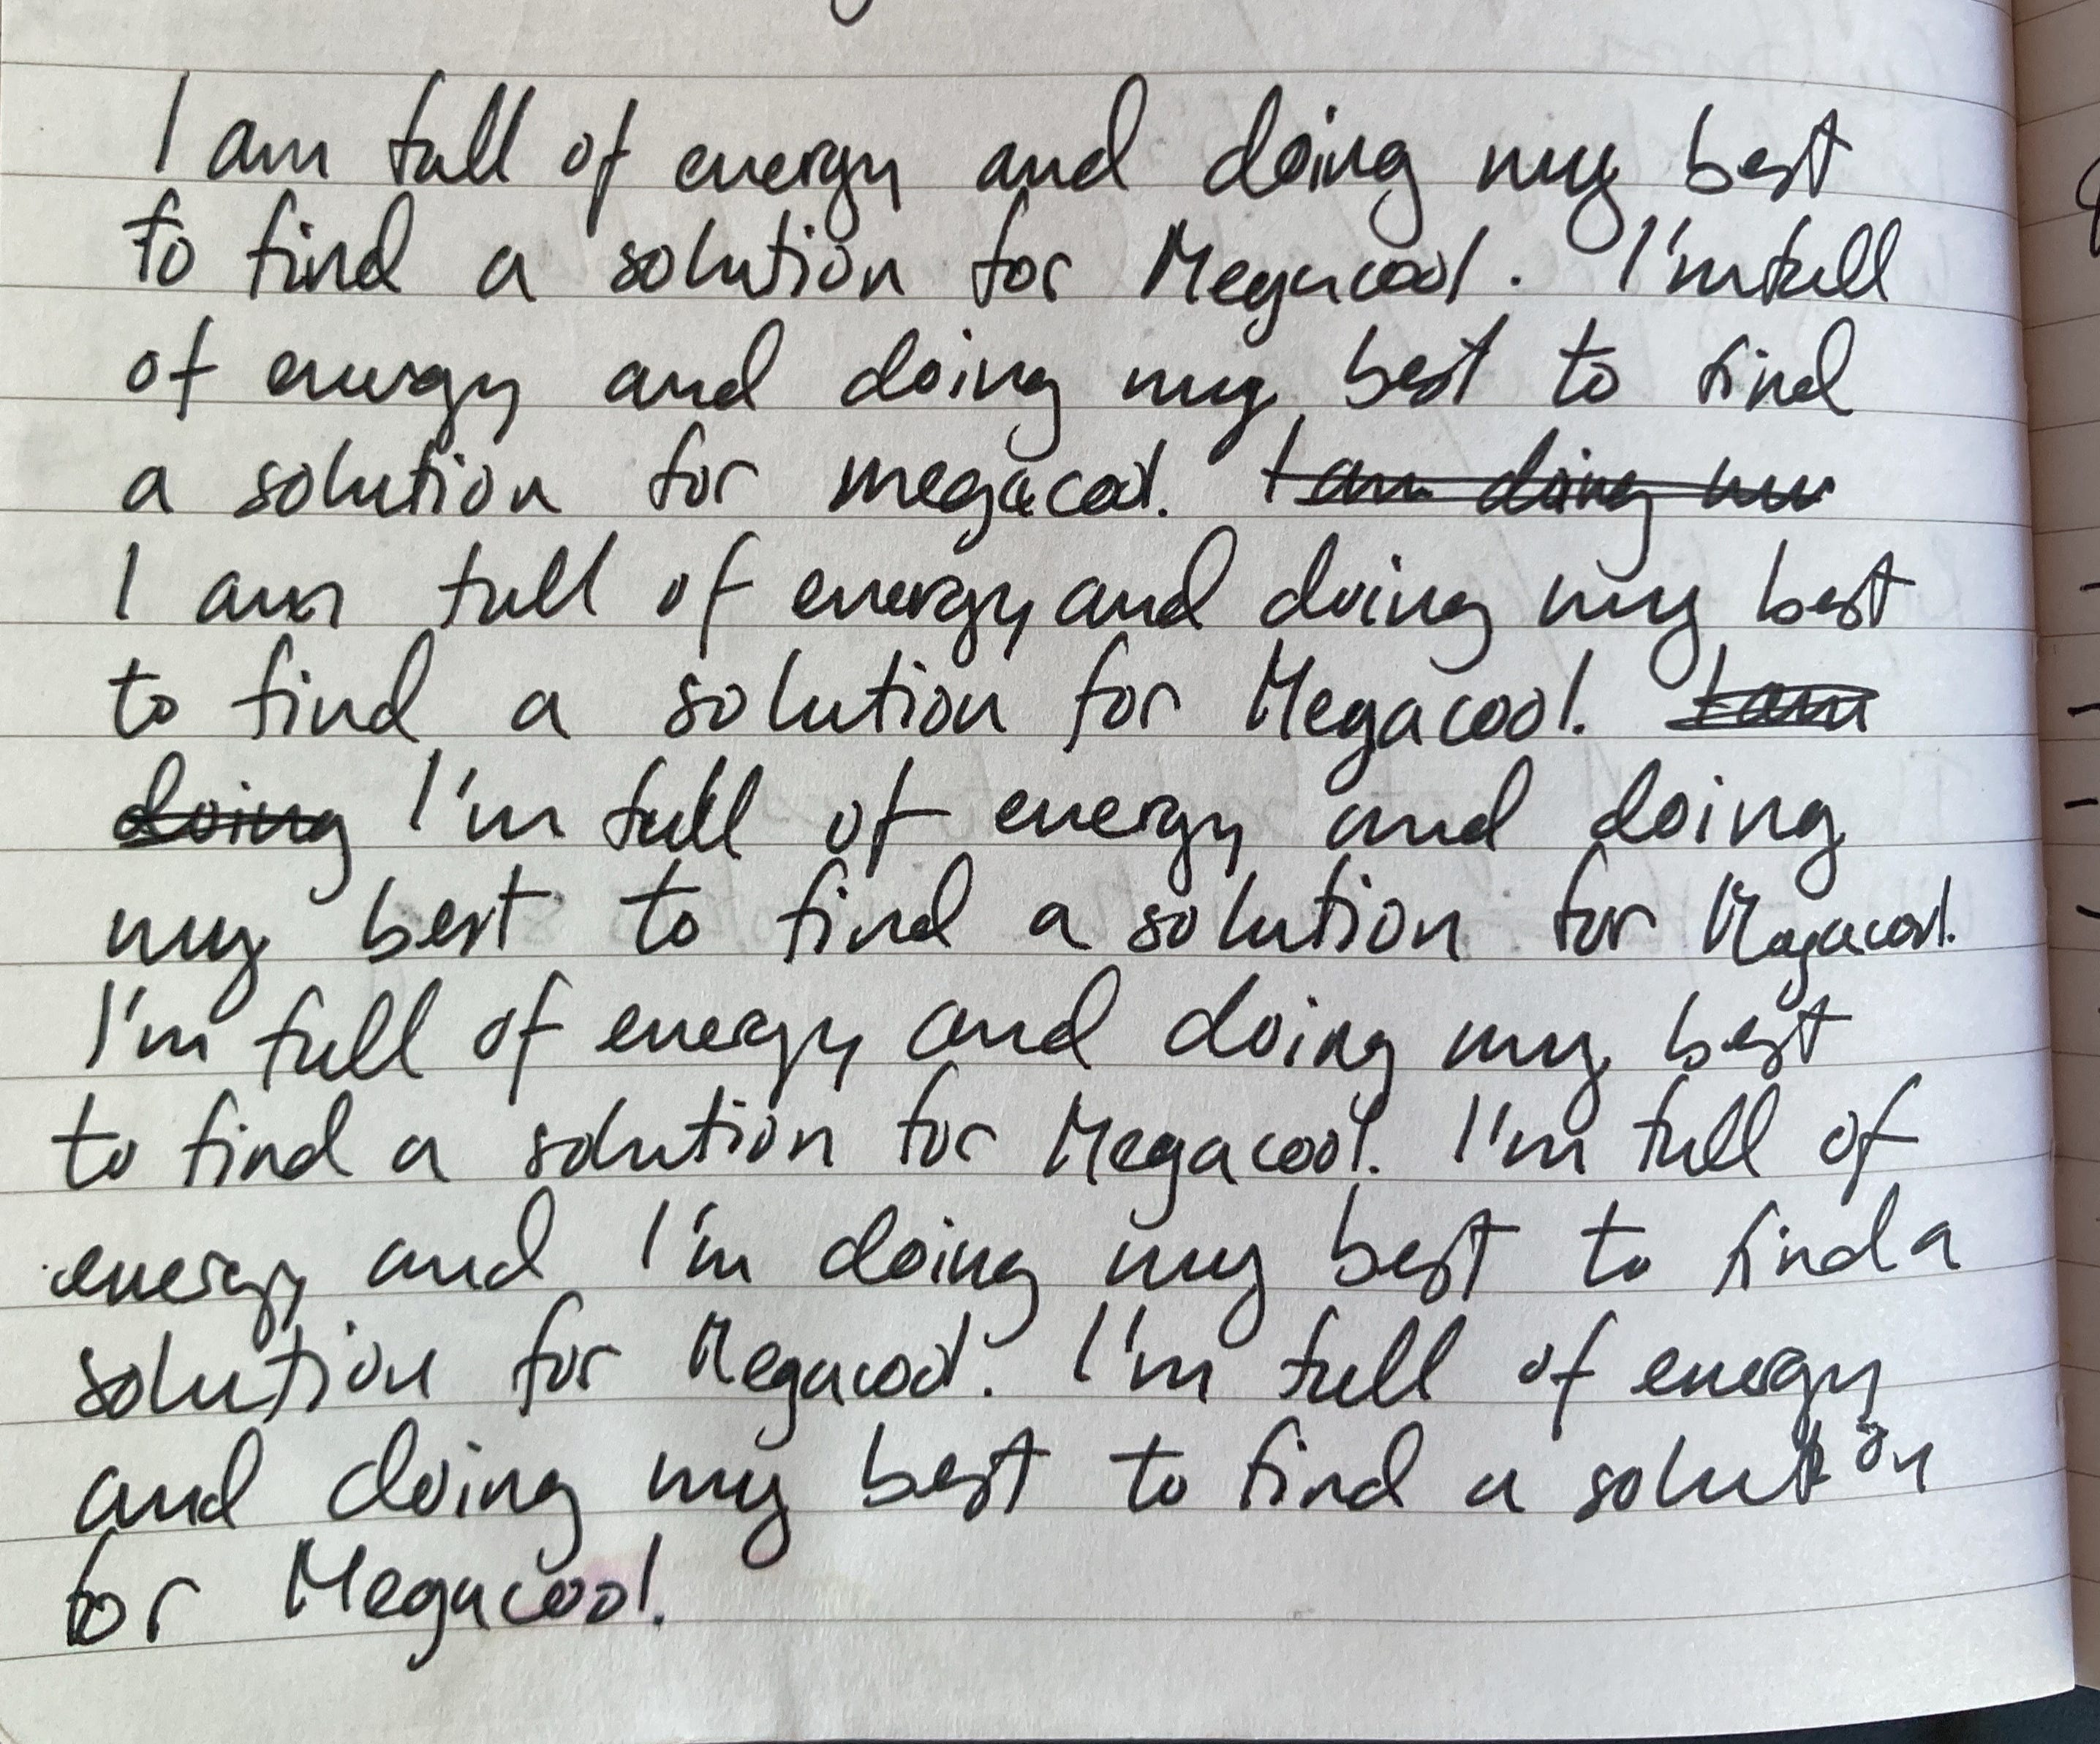 I am full of energy and doing my best
to find a solution for Megacool. I'm full
of energy and doing my best to find
a solution for megacool. I am doing my
I am full of energy and doing my best
to find a solution for Megacool. I am
doing I'm full of energy and doing
my best to find a solution for Megacool.
I'm full of energy and doing my best
to find a solution for Megacool. I'm full of
energy and I'm doing my best to find a
solution for Megacool. I'm full of energy
and doing my best to find a solution
for Megacool.